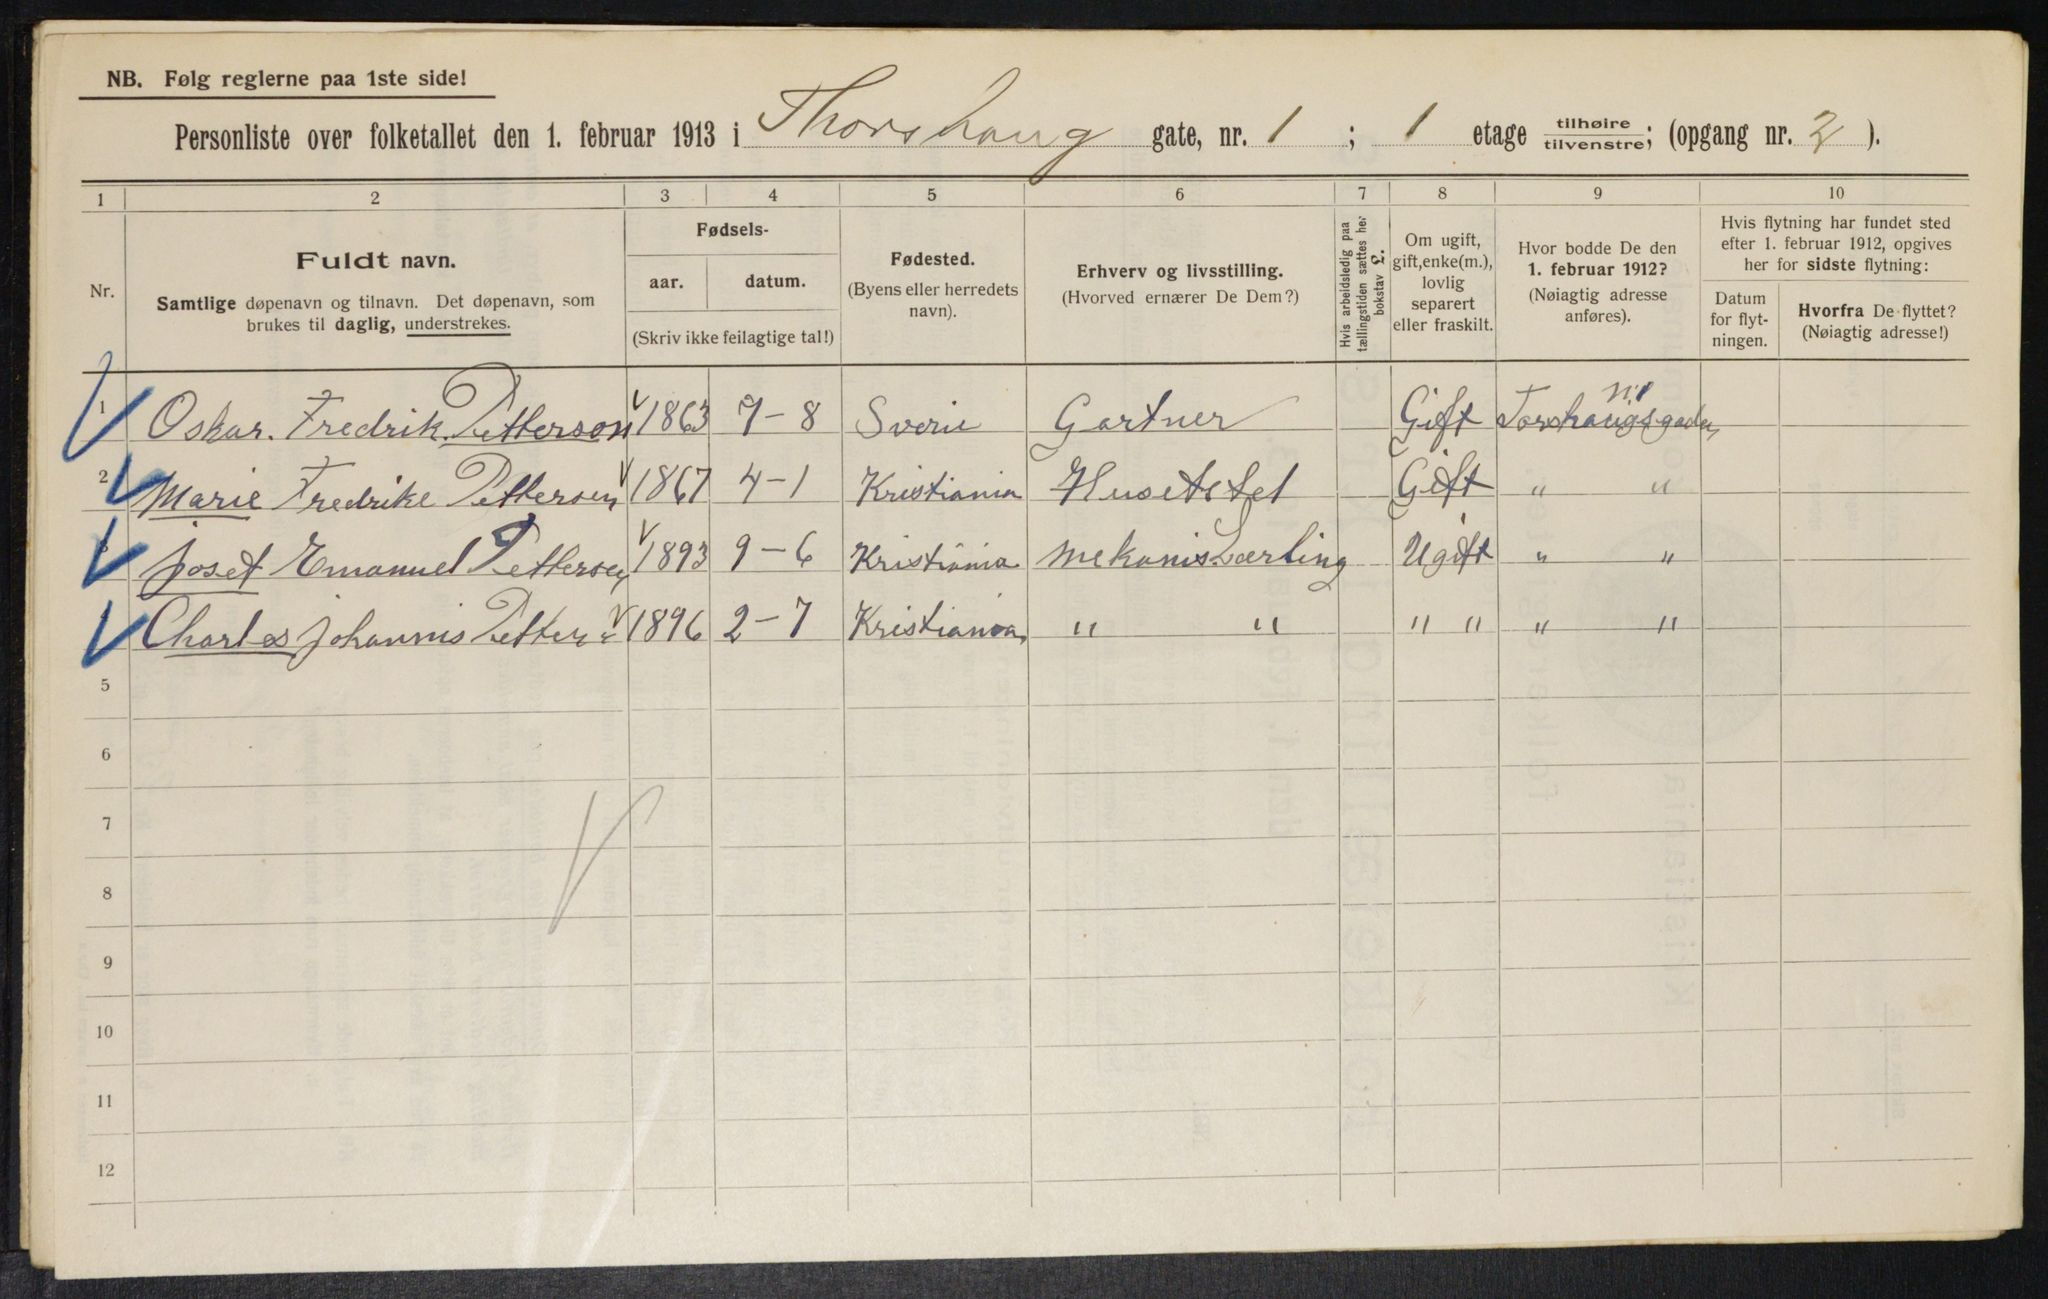 NB. Følg reglerne paa 1ste side!
Personliste over folketallet den 1. februar 1913 i Thorshaug gate, nr. 1 ; 1 etage tilhøire / tilvenstre; (opgang nr. 2 ).
1 2 3 4 5 6 7 8 9 10
Nr.
Fuldt navn.
Samtlige døpenavn og tilnavn. Det døpenavn, som
brukes til daglig, understrekes.
Fødsels-
aar. datum.
(Skriv ikke feilagtige tal!)
Fødested.
(Byens eller herredets
navn).
Erhverv og livsstilling.
(Hvorved ernærer De Dem?)
Hvis arbeidsledig paa
tællingstiden sættes her
bokstav £.
Om ugift,
gift, enke(m.),
lovlig
separert
eller fraskilt.
Hvor bodde De den
1. februar 1912?
(Nøiagtig adresse
anføres).
Hvis flytning har fundet sted
efter 1. februar 1912, opgives
her for sidste flytning:
Datum
for flyt-
ningen.
Hvorfra De flyttet?
(Nøiagtig adresse!)
1 Oskar. Fredrik. Petterson 1863 7-8 Sverie Gartner Gift Torshaugsgaden nr 1
2 Marie Fredrike Pettersen 1867 4-1 Kristiania Husetstel Gift " "
3 Josef Emanuel Pettersen 1893 9-6 Kristiania Mekanis. Lærling Ugift " "
Charles Johannis Petter " 1896 2-7 Kristiania " " " " " "
5
6
7
8
9
10
11
12